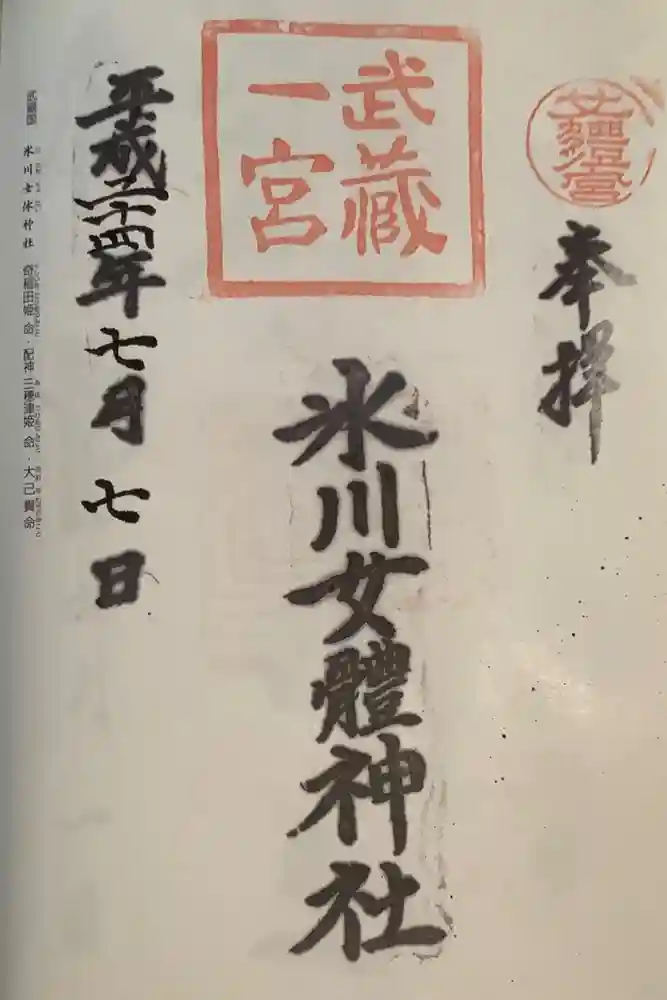 女體宮
奉拝
武藏
一宮
氷川女體神社
平成二十四年七月七日
武蔵国 氷川女体神社 奇稲田姫命・配神 三穂津姫命・大己貴命